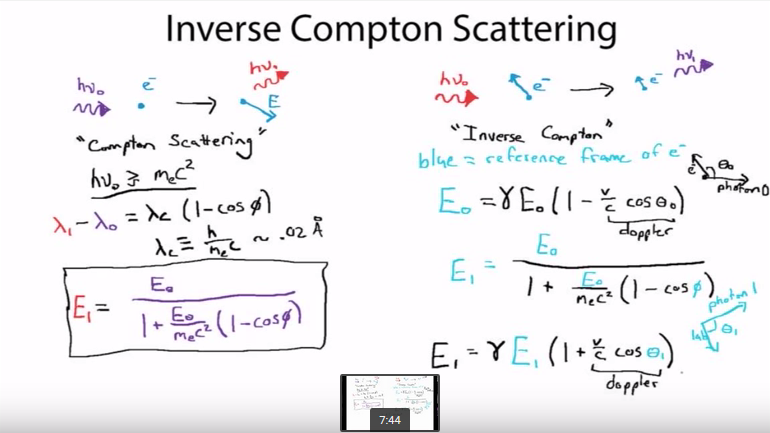 Inverse Compton Scattering
hν₀ e⁻ → hν₁ E
"Compton Scattering"
hν₀ ≳ mₑc²
λ₁ - λ₀ = λc (1 - cos φ)
λc ≡ h/mₑc ~ .02 Å
E₁ = E₀ / (1 + E₀/mₑc² (1 - cos φ))
hν₀ e⁻ → e⁻ hν₁
"Inverse Compton"
blue = reference frame of e⁻
e⁻ θ₀ photon 0
E₀ = γE₀ (1 - v/c cos θ₀)
doppler
E₁ = E₀ / (1 + E₀/mₑc² (1 - cos φ))
photon 1
lab θ₁
E₁ = γ E₁ (1 + v/c cos θ₁)
doppler
7:44